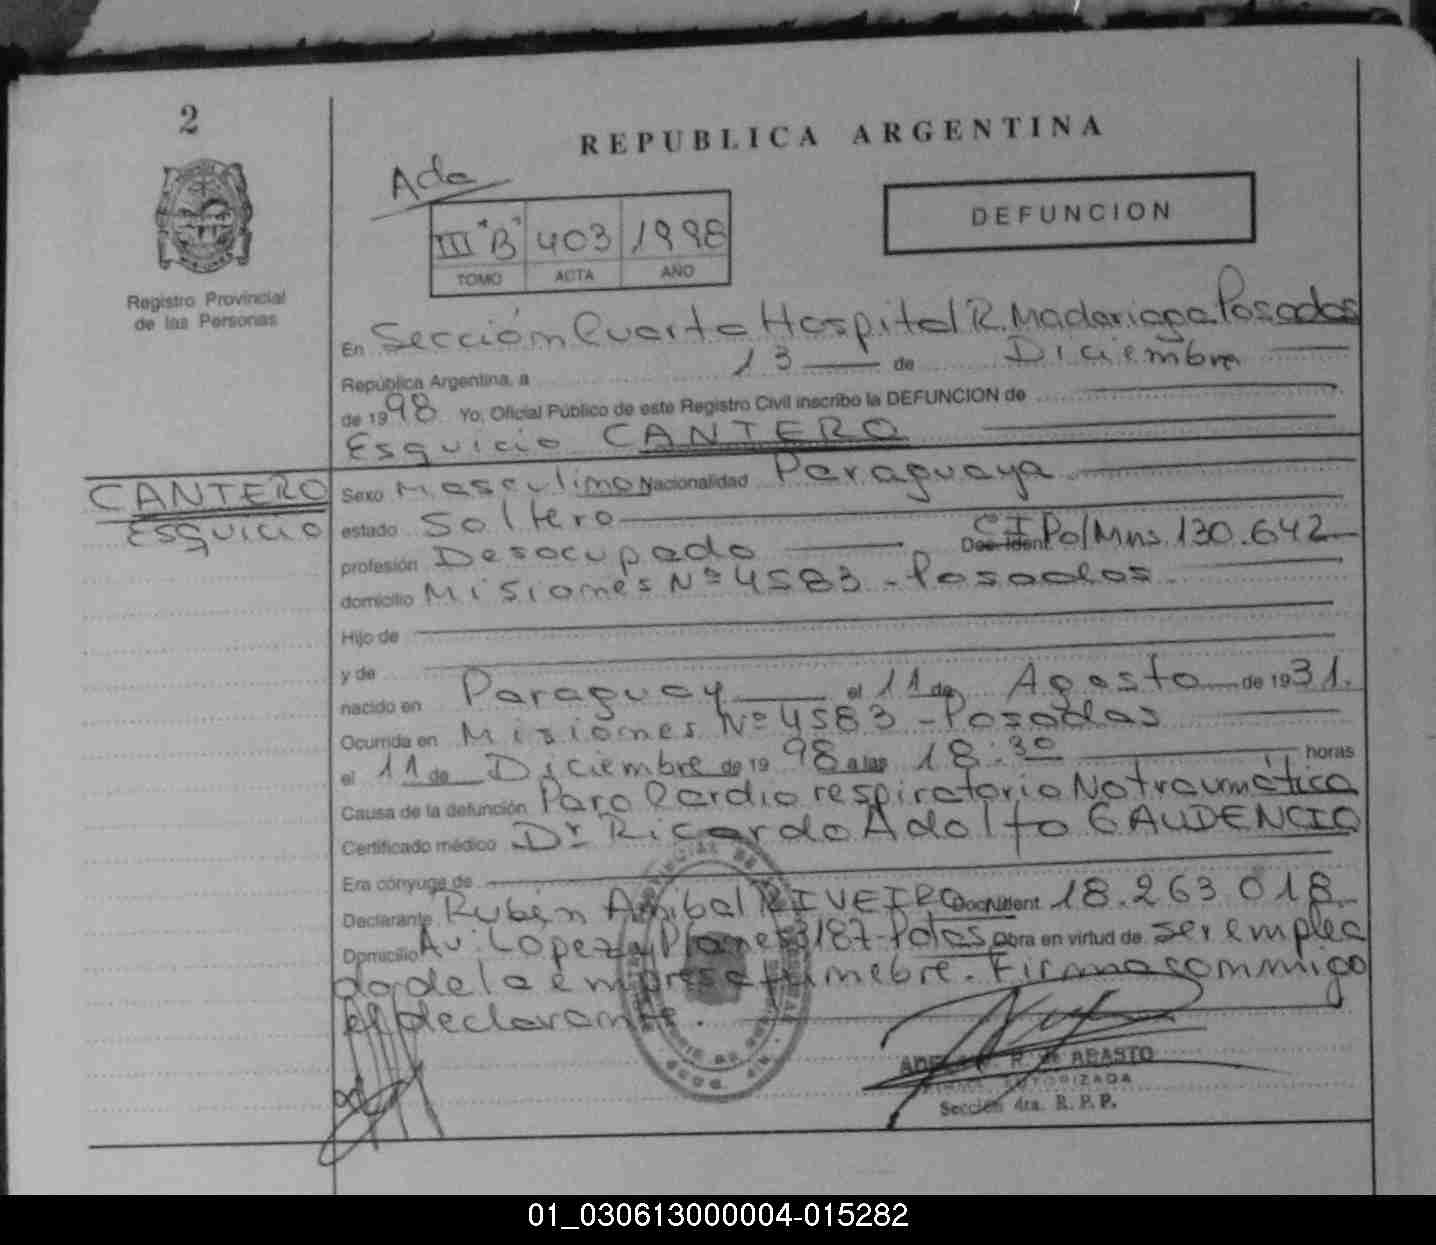 2
REPUBLICA ARGENTINA
Ada
III "B" 403 1998
TOMO ACTA AÑO
DEFUNCION
Registro Provincial
de las Personas
En Sección Cuarta Hospital R. Madariaga Posadas
República Argentina, a 13 de Diciembre
de 1998 Yo, Oficial Público de este Registro Civil inscribo la DEFUNCION de
Esquicio CANTERO
CANTERO
Esquicio
Sexo Masculino Nacionalidad Paraguaya
estado Soltero
profesión Desocupado Doc Ident CI Pol Mns. 130.642
domicilio Misiones Nº 4583 - Posadas
Hijo de
y de
nacido en Paraguay el 11 de Agosto de 1931.
Ocurrida en Misiones Nº 4583 - Posadas
el 11 de Diciembre de 1998 a las 18:30 horas
Causa de la defunción Paro Cardio respiratorio No traumática
Certificado médico Dr Ricardo Adolfo GAUDENCIO
Era cónyuge de
Declarante Rubén Anibal RIVEIRO Doc. Ident 18.263.018
Domicilio Av. Lopez y Planes 3187 - Pdas Obra en virtud de ser emplea
do de la empresa fúnebre. Firma commigo
el declarante.
ABASTO
AUTORIZADA
Sección 4ta. R. P. P.
01_030613000004-015282